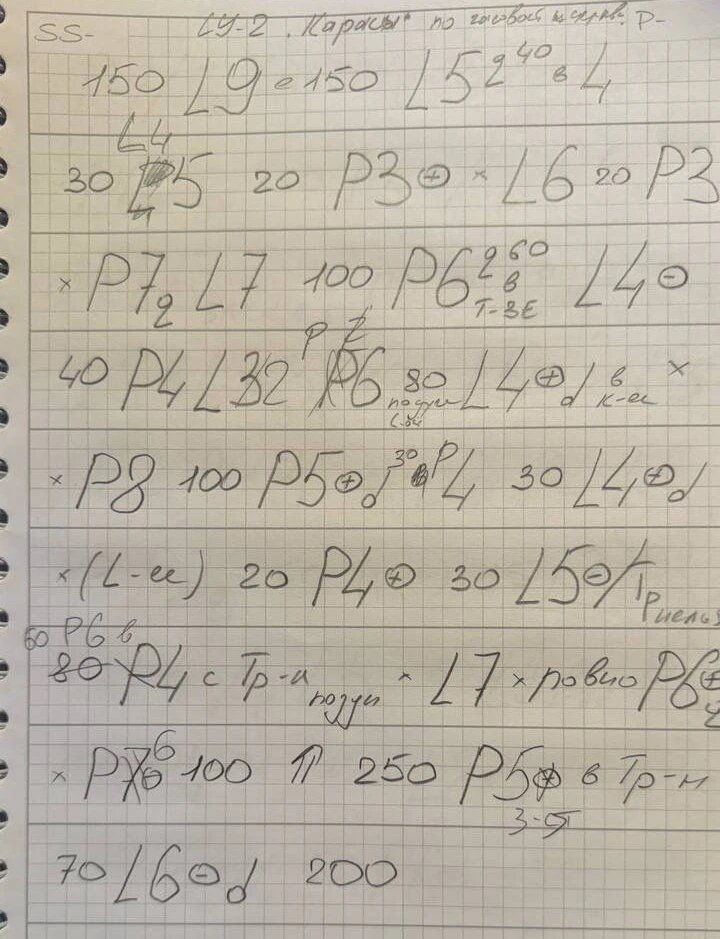 SS- СУ-2 "Карасы" по часовой P-
150 L9 е 150 L5 2 40 в 4
L4
30 L5 20 P3⊕ × L6 20 P3
× P7 2 L7 100 P6 2 60 в Т-ЗЕ L4⊖
40 P4 L32 P6 80 L4⊕d в к-ее ×
× P8 100 P5⊕d 30 P4 30 L4⊕d
×(L-ее) 20 P4⊕ 30 L5⊖/
60 P6 в
80 P4 с Тр-и × L7 × ровно P6⊕
× P6 100 ⇑ 250 P5 в Тр-н
70 L6⊖d 200